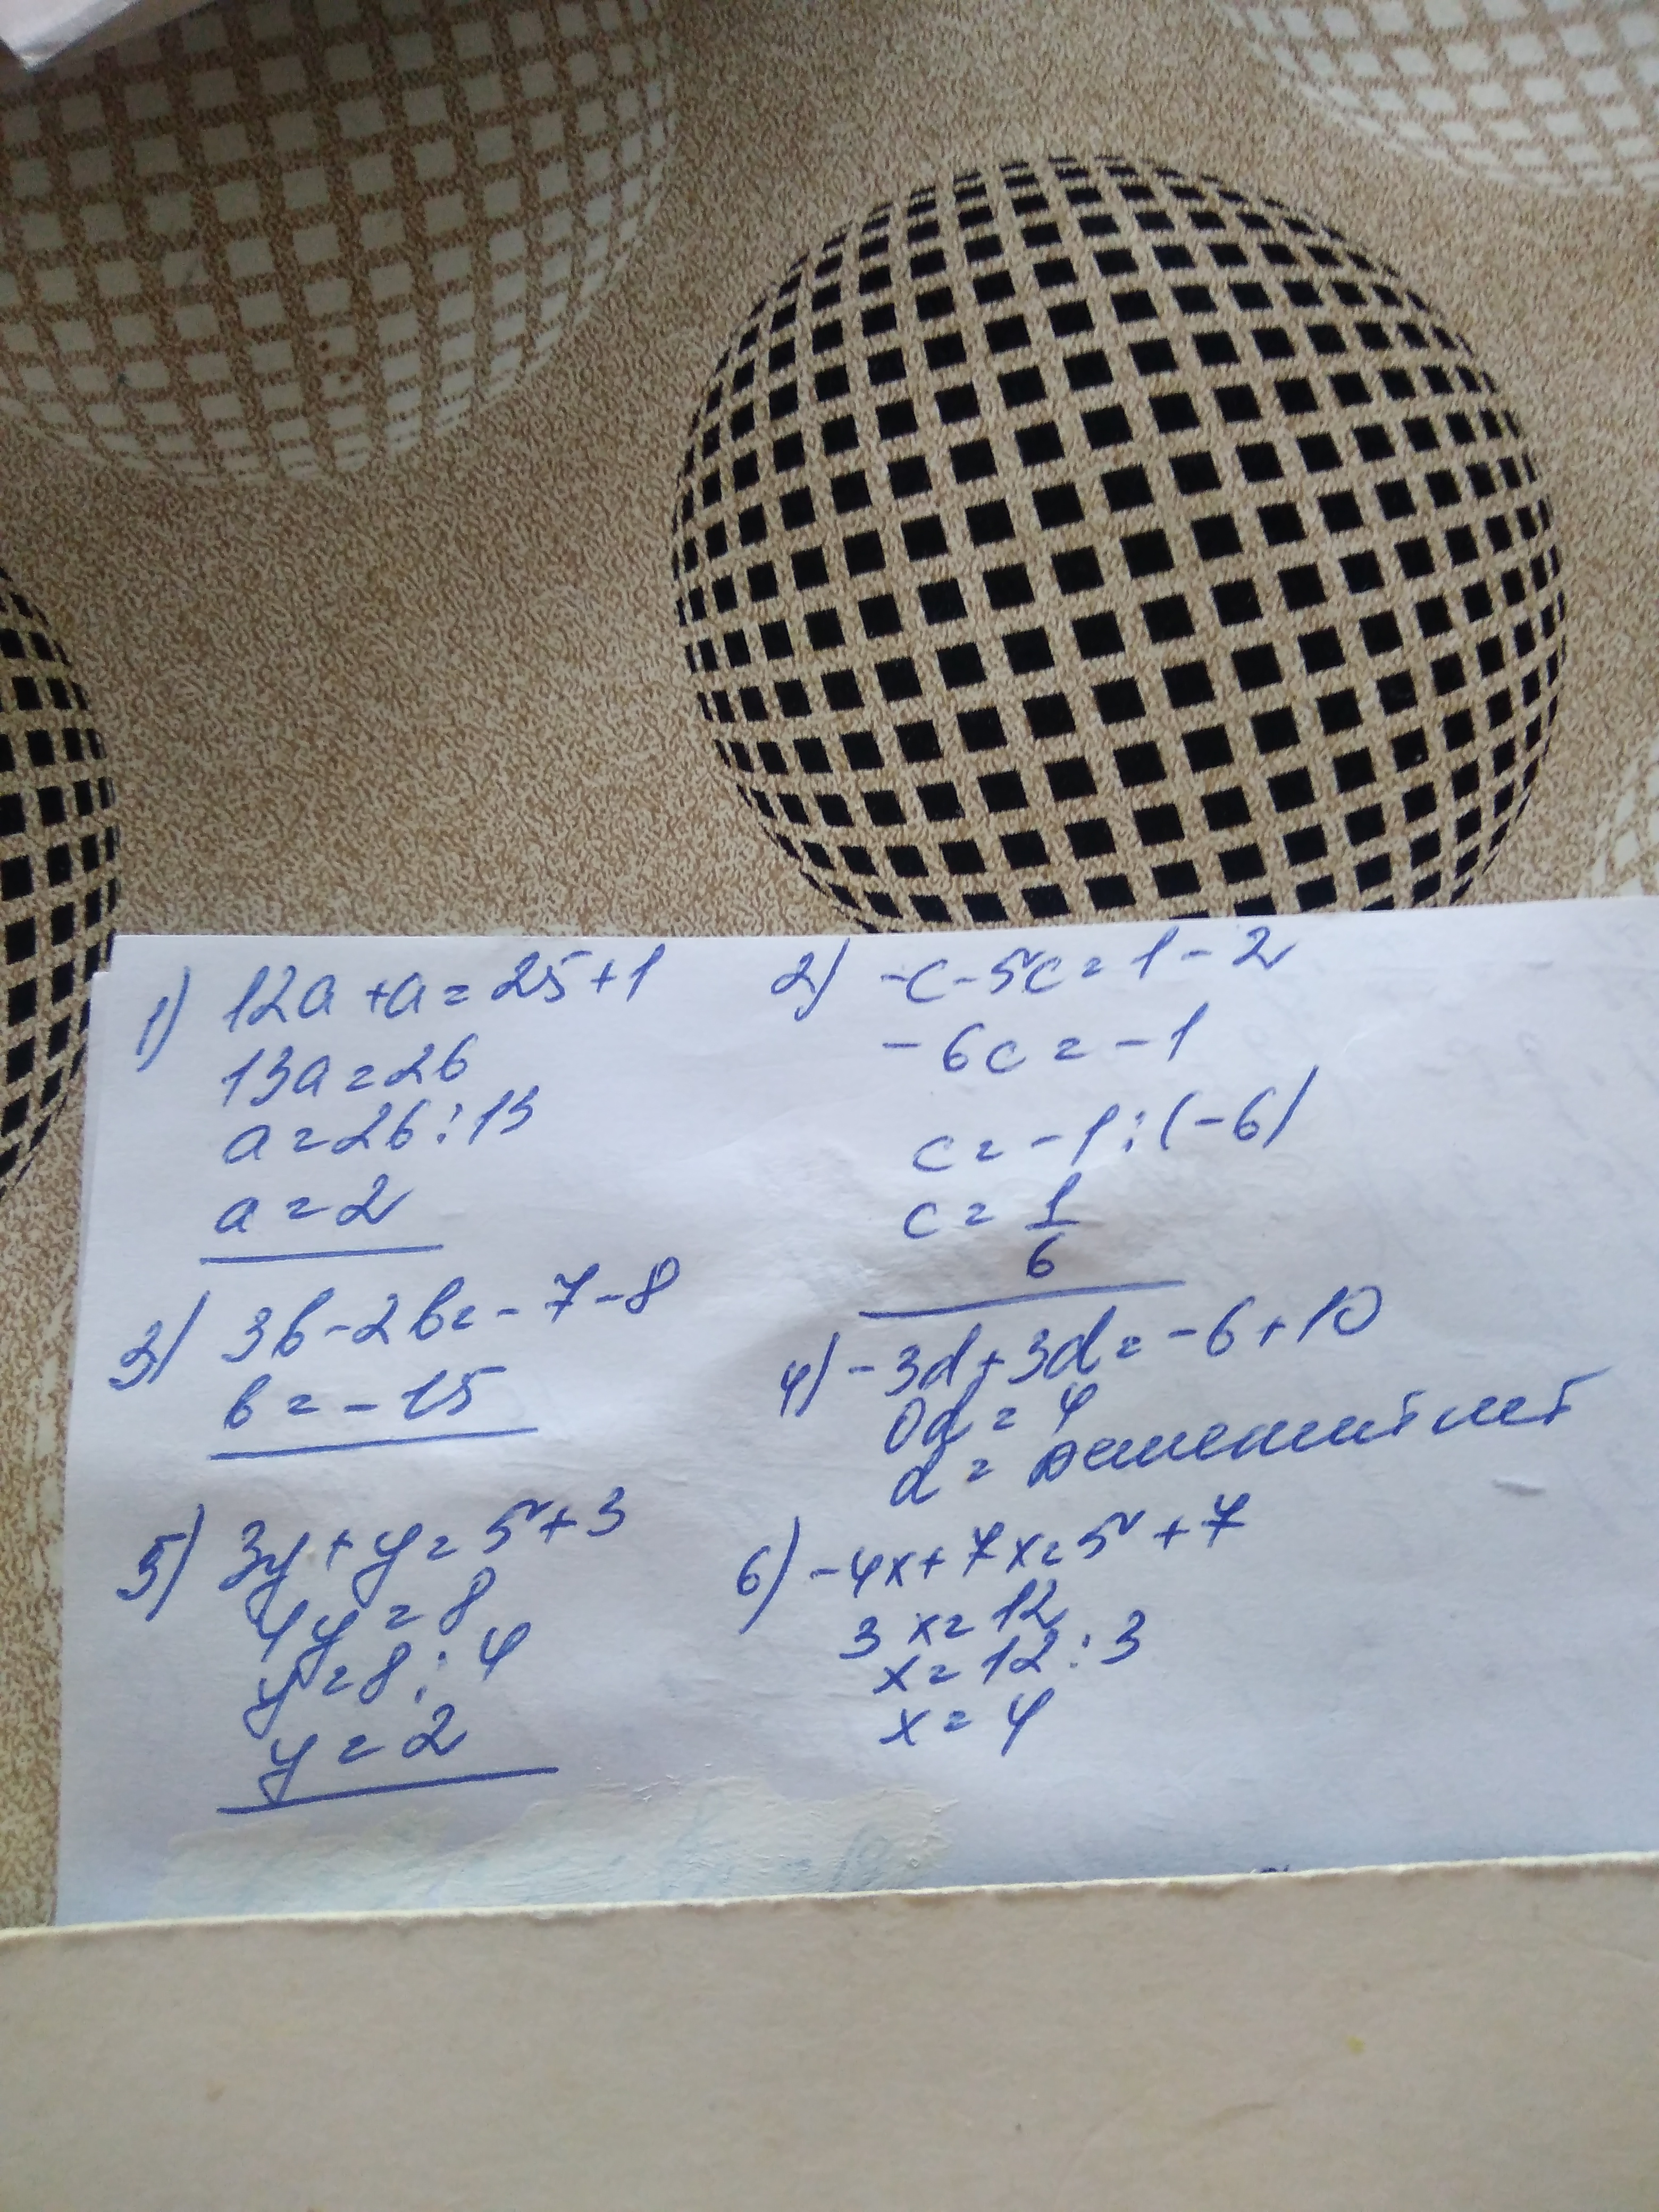 1) 12a + a = 25 + 1
13a = 26
a = 26 : 13
a = 2
2) -c - 5c = 1 - 2
-6c = -1
c = -1 : (-6)
c = 1/6
3) 3b - 2b = -7 - 8
b = -15
4) -3d + 3d = -6 + 10
0d = 4
d = решений нет
5) 3y + y = 5 + 3
4y = 8
y = 8 : 4
y = 2
6) -4x + 7x = 5 + 7
3x = 12
x = 12 : 3
x = 4